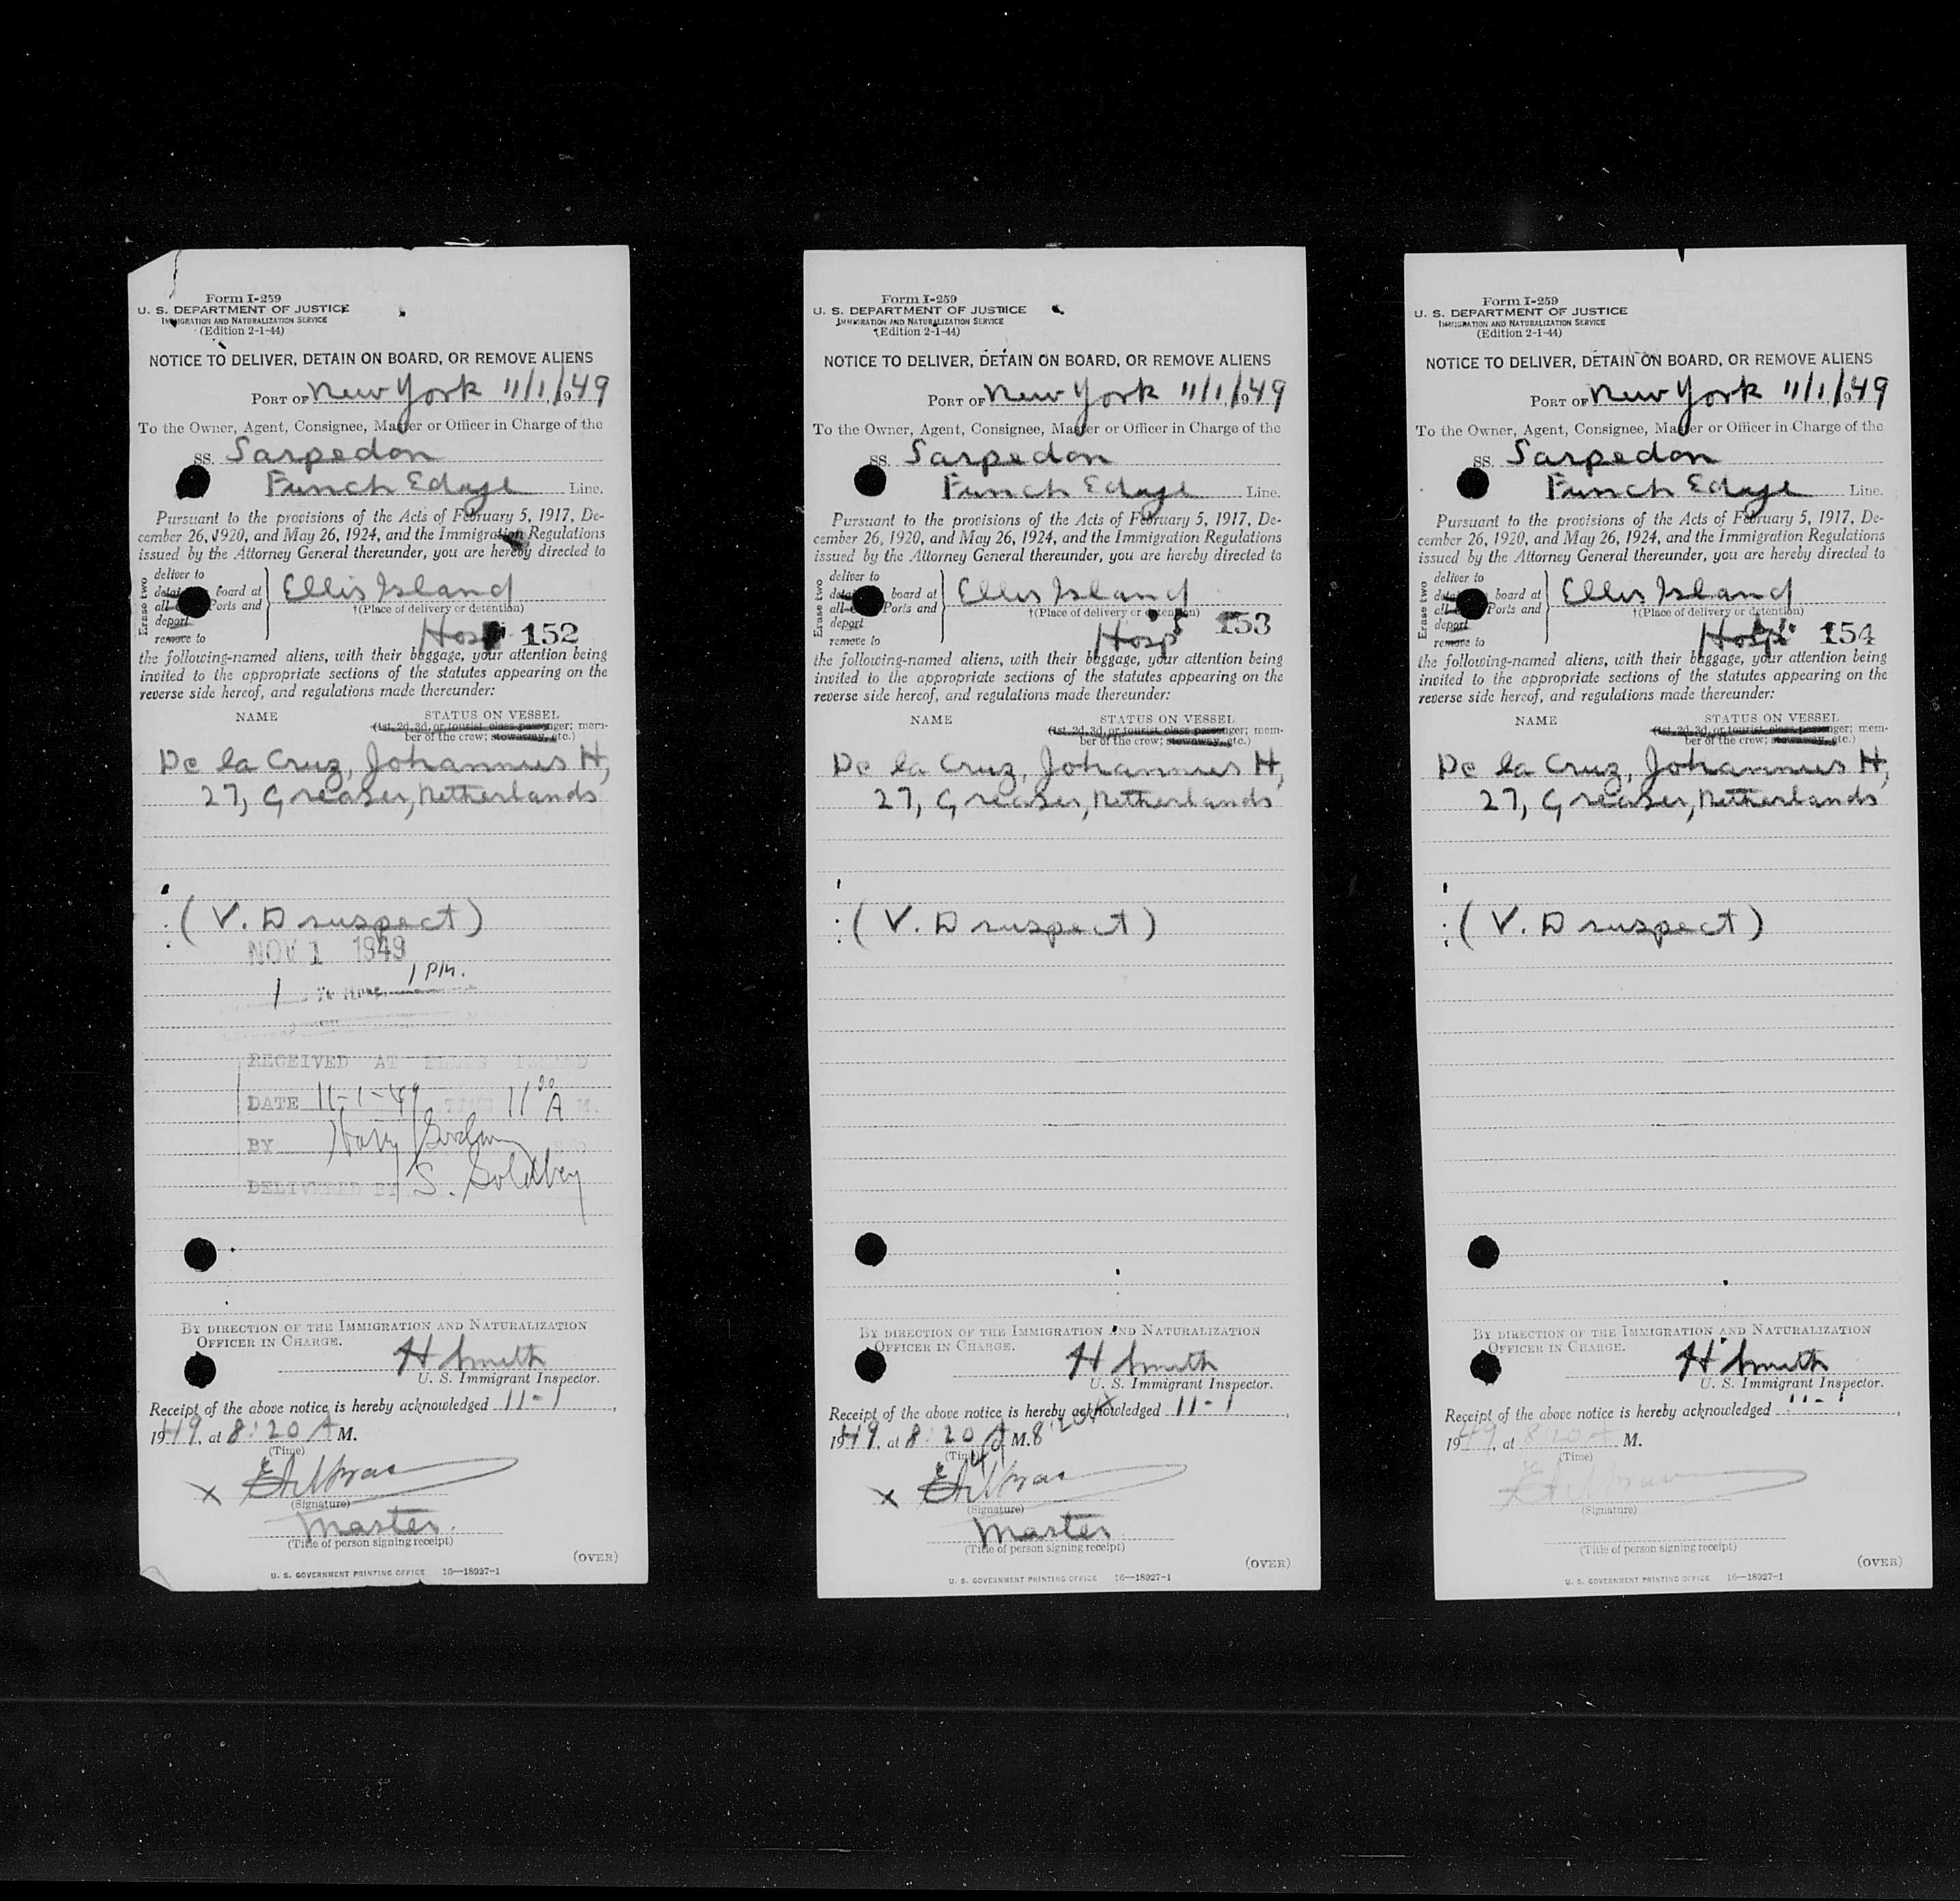 Form I-259
U. S. DEPARTMENT OF JUSTICE
IMMIGRATION AND NATURALIZATION SERVICE
(Edition 2-1-44)
NOTICE TO DELIVER, DETAIN ON BOARD, OR REMOVE ALIENS
PORT OF New York 11/1/1949
To the Owner, Agent, Consignee, Master or Officer in Charge of the
SS. Sarpedon
Funch Edaye Line.
Pursuant to the provisions of the Acts of February 5, 1917, De-
cember 26, 1920, and May 26, 1924, and the Immigration Regulations
issued by the Attorney General thereunder, you are hereby directed to
Erase two
deliver to
board at
Ports and
deport
remove to
Ellis Island
†(Place of delivery or detention)
Hosp 152
the following-named aliens, with their baggage, your attention being
invited to the appropriate sections of the statutes appearing on the
reverse side hereof, and regulations made thereunder:
NAME STATUS ON VESSEL
(1st, 2d, 3d, or tourist class passenger; mem-
ber of the crew; stowaway, etc.)
De la Cruz, Johannus H,
27, Greaser, Netherlands
(V. D suspect)
NOV 1 1949
1 1 PM.
RECEIVED AT ELLIS ISLAND
DATE 11-1-49 TIME 11 00 A M.
BY Harry
DELIVERED BY S. Goldberg
BY DIRECTION OF THE IMMIGRATION AND NATURALIZATION
OFFICER IN CHARGE.
H Smith
U. S. Immigrant Inspector.
Receipt of the above notice is hereby acknowledged 11-1,
1949, at 8:20 A M.
(Time)
X
(Signature)
Master
(Title of person signing receipt)
(OVER)
U. S. GOVERNMENT PRINTING OFFICE 16—18927-1
Form I-259
U. S. DEPARTMENT OF JUSTICE
IMMIGRATION AND NATURALIZATION SERVICE
(Edition 2-1-44)
NOTICE TO DELIVER, DETAIN ON BOARD, OR REMOVE ALIENS
PORT OF New York 11/1/1949
To the Owner, Agent, Consignee, Master or Officer in Charge of the
SS. Sarpedon
Funch Edaye Line.
Pursuant to the provisions of the Acts of February 5, 1917, De-
cember 26, 1920, and May 26, 1924, and the Immigration Regulations
issued by the Attorney General thereunder, you are hereby directed to
Erase two
deliver to
board at
Ports and
deport
remove to
Ellis Island
†(Place of delivery or detention)
Hosp 153
the following-named aliens, with their baggage, your attention being
invited to the appropriate sections of the statutes appearing on the
reverse side hereof, and regulations made thereunder:
NAME STATUS ON VESSEL
(1st, 2d, 3d, or tourist class passenger; mem-
ber of the crew; stowaway, etc.)
De la Cruz, Johannus H,
27, Greaser, Netherlands
(V. D suspect)
BY DIRECTION OF THE IMMIGRATION AND NATURALIZATION
OFFICER IN CHARGE.
H Smith
U. S. Immigrant Inspector.
Receipt of the above notice is hereby acknowledged 11-1,
1949, at 8:20 A M. 8:20
(Time)
X
(Signature)
Master
(Title of person signing receipt)
(OVER)
U. S. GOVERNMENT PRINTING OFFICE 16—18927-1
Form I-259
U. S. DEPARTMENT OF JUSTICE
IMMIGRATION AND NATURALIZATION SERVICE
(Edition 2-1-44)
NOTICE TO DELIVER, DETAIN ON BOARD, OR REMOVE ALIENS
PORT OF New York 11/1/1949
To the Owner, Agent, Consignee, Master or Officer in Charge of the
SS. Sarpedon
Funch Edaye Line.
Pursuant to the provisions of the Acts of February 5, 1917, De-
cember 26, 1920, and May 26, 1924, and the Immigration Regulations
issued by the Attorney General thereunder, you are hereby directed to
Erase two
deliver to
board at
Ports and
deport
remove to
Ellis Island
†(Place of delivery or detention)
Hosp 154
the following-named aliens, with their baggage, your attention being
invited to the appropriate sections of the statutes appearing on the
reverse side hereof, and regulations made thereunder:
NAME STATUS ON VESSEL
(1st, 2d, 3d, or tourist class passenger; mem-
ber of the crew; stowaway, etc.)
De la Cruz, Johannus H,
27, Greaser, Netherlands
(V. D suspect)
BY DIRECTION OF THE IMMIGRATION AND NATURALIZATION
OFFICER IN CHARGE.
H Smith
U. S. Immigrant Inspector.
Receipt of the above notice is hereby acknowledged 11-1,
1949, at 8:20 A M.
(Time)
(Signature)
(Title of person signing receipt)
(OVER)
U. S. GOVERNMENT PRINTING OFFICE 16—18927-1